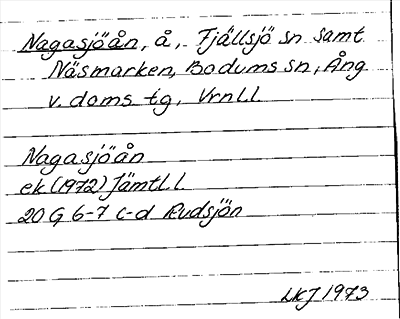 Nagasjöån, å, Fjällsjö sn samt
Näsmarken, Bodums sn, Ång
v. doms tg, Vrnl.l.
Nagasjöån
ek (1972) Jämtl. l.
20 G 6-7 c-d Rudsjön
LKJ 1973